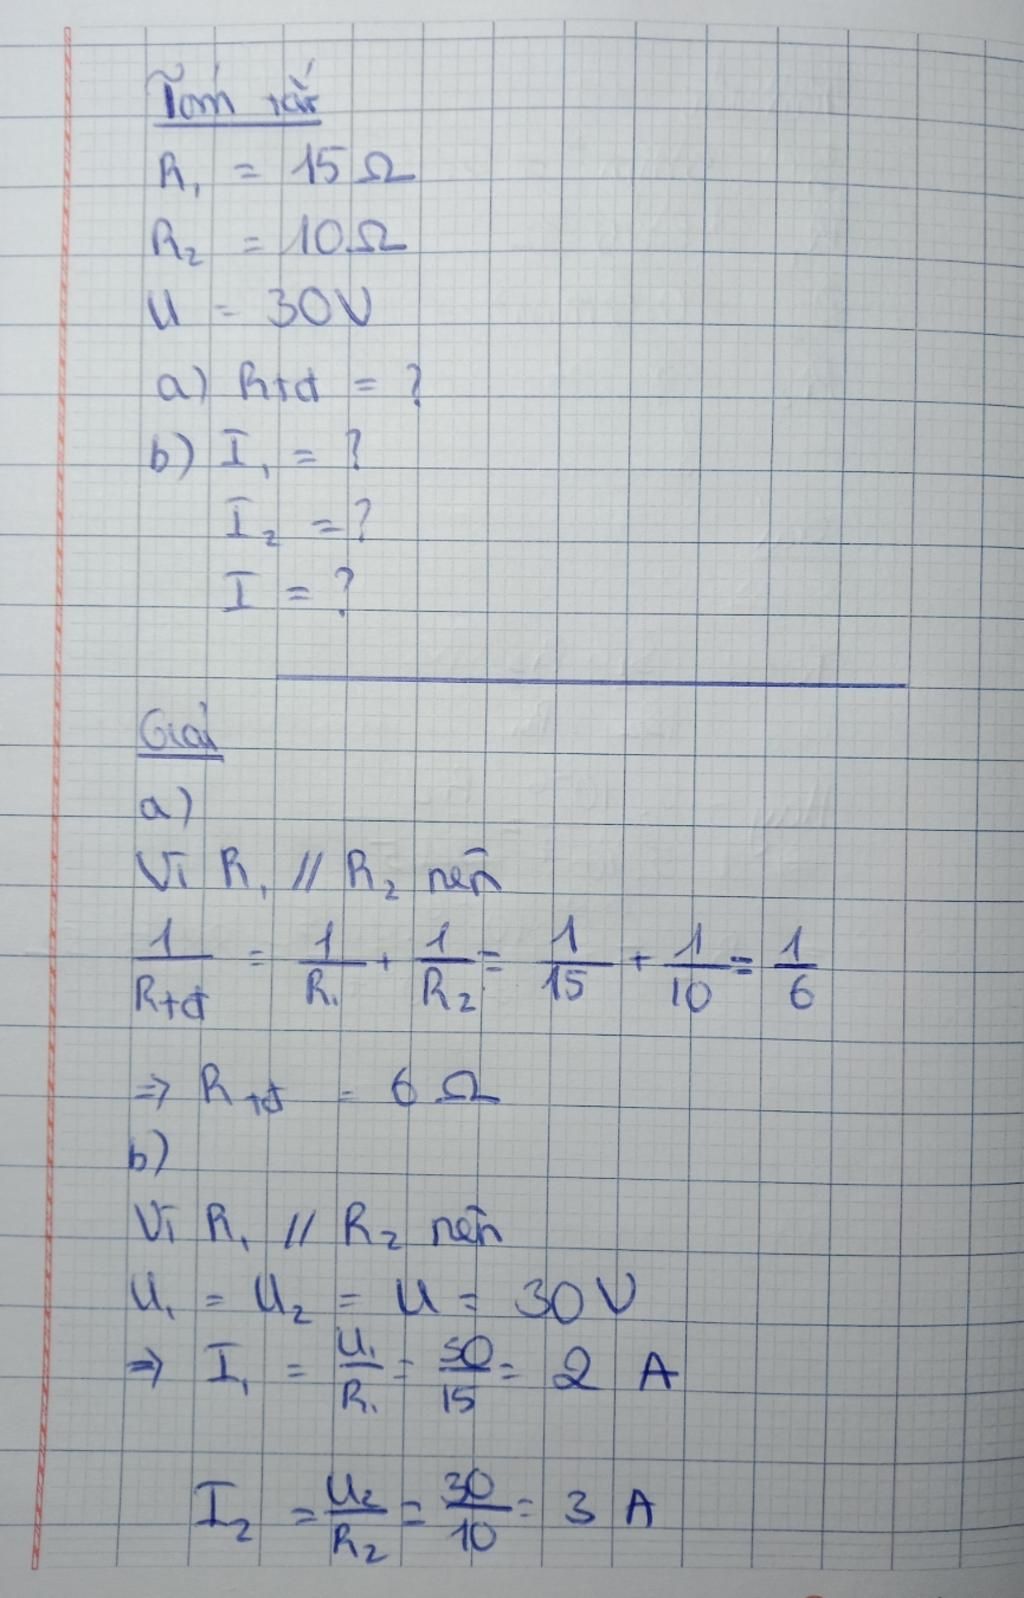 Tóm tắt
R₁ = 15 Ω
R₂ = 10 Ω
U = 30V
a) Rtđ = ?
b) I₁ = ?
I₂ = ?
I = ?
Giải
a)
Vì R₁ // R₂ nên
1/Rtđ = 1/R₁ + 1/R₂ = 1/15 + 1/10 = 1/6
⇒ Rtđ = 6 Ω
b)
Vì R₁ // R₂ nên
U₁ = U₂ = U = 30V
⇒ I₁ = U₁/R₁ = 30/15 = 2 A
I₂ = U₂/R₂ = 30/10 = 3 A